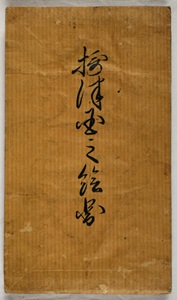 摂津国之絵図